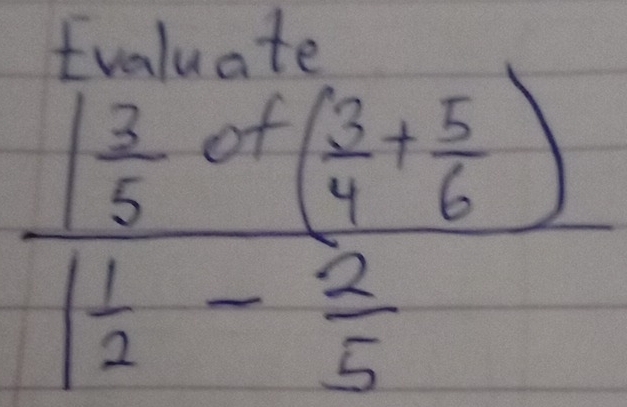 Evaluate
1 3/5 of (3/4 + 5/6)
1 1/2 - 2/5